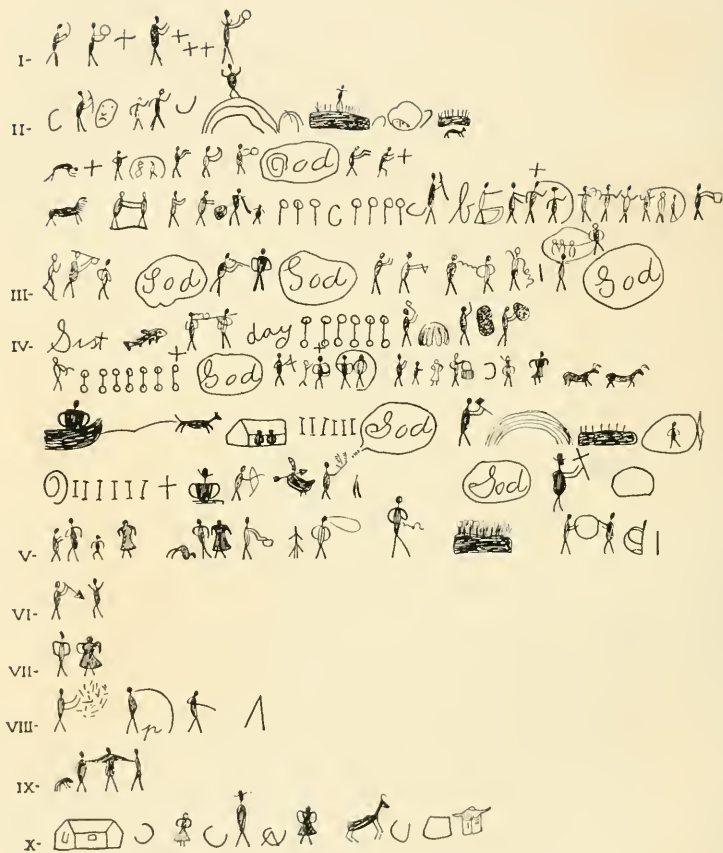 I-
II- C
God
C
III- God God God
IV- day
God
God
God
V-
VI-
VII-
VIII- p
IX-
X-